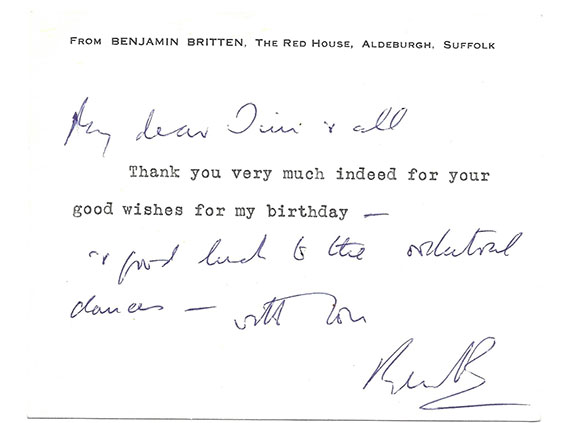 FROM BENJAMIN BRITTEN, THE RED HOUSE, ALDEBURGH, SUFFOLK
My dear & all
Thank you very much indeed for your
good wishes for my birthday —
& good luck to the orchestral
dances — with love
Ben B